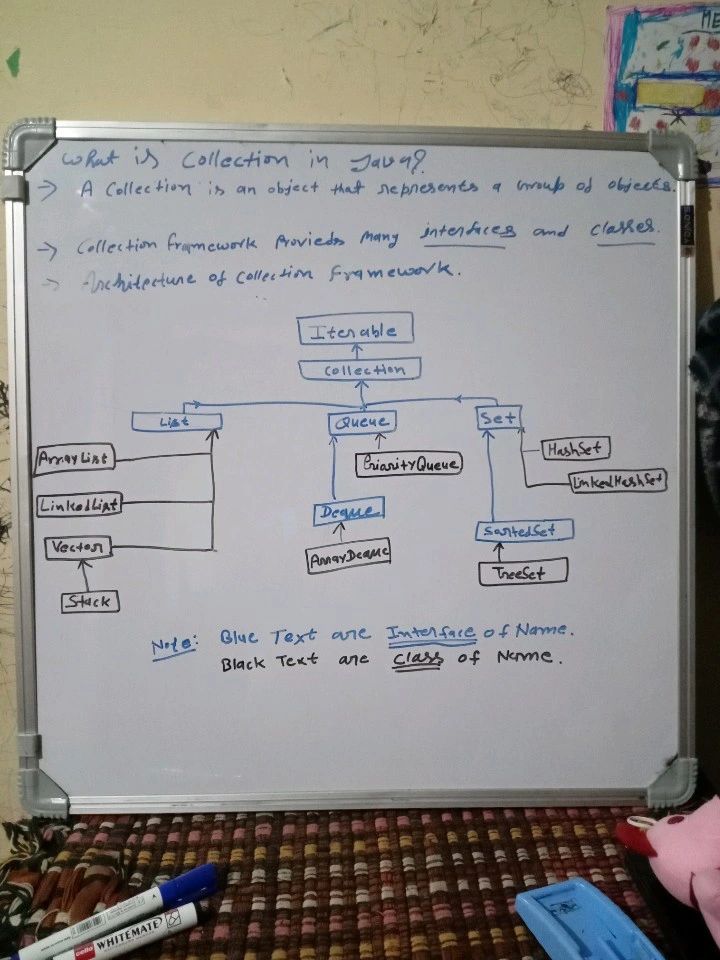 ME
What is Collection in Java?
→ A Collection is an object that represents a Group of objects.
→ Collection framework Provieds Many interfaces and classes.
→ Architecture of Collection Framework.
Iterable
Collection
List
Queue
Set
ArrayList
PriorityQueue
HashSet
LinkedList
LinkedHashSet
Deque
Vector
ArrayDeque
SortedSet
Stack
TreeSet
Note: Blue Text are Interface of Name.
Black Text are Class of Name.
cello WHITEMATE